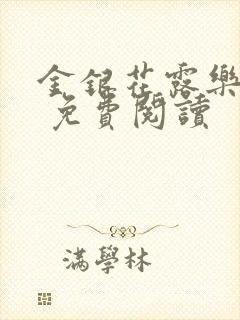 金銀花露樂
免費閱讀
滿學林